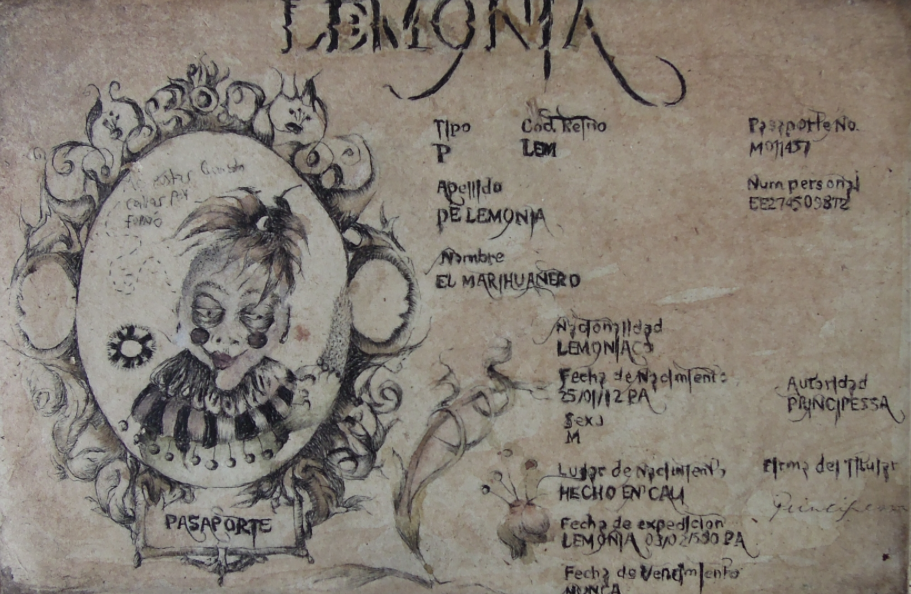 LEMONIA
Tipo
P
Cod. Reino
LEM
Pasaporte No.
M011457
Apellido
DE LEMONIA
Num personal
EE274509872
Nombre
EL MARIHUANERO
Nacionalidad
LEMONIACO
Fecha de Nacimiento
25/01/12 PA
Autoridad
PRINCIPESSA
Sexo
M
Lugar de Nacimiento
HECHO EN CALI
Firma del Titular
Principessa
Fecha de expedicion
LEMONIA 03/02/590 PA
Fecha de Vencimiento
NUNCA
PASAPORTE